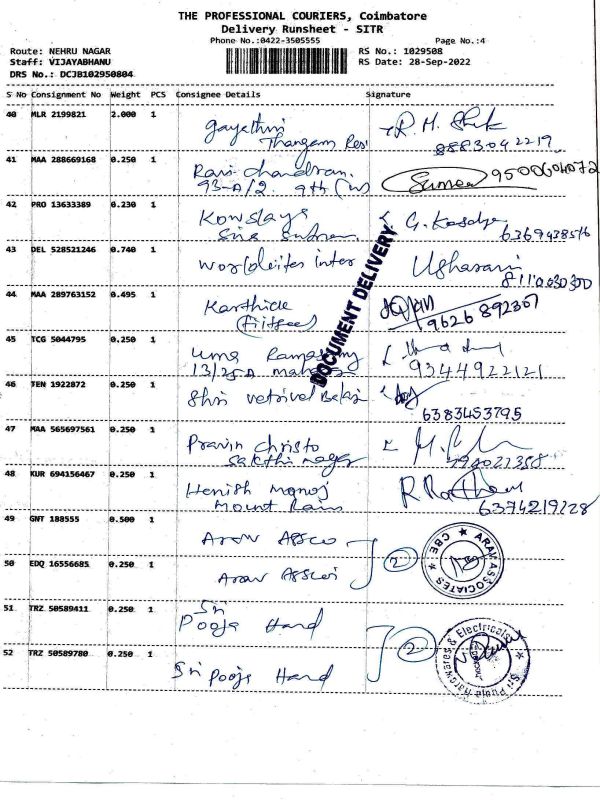 THE PROFESSIONAL COURIERS, Coimbatore
Delivery Runsheet - SITR
Phone No.:0422-3505555
Page No.:4
Route: NEHRU NAGAR
RS No.: 1029508
Staff: VIJAYABHANU
RS Date: 28-Sep-2022
DRS No.: DCJB102950804
S No Consignment No Weight PCS Consignee Details Signature
40 MLR 2199821 2.000 1 Gayathri
Thangam Resi
R. M.
8883042219
41 MAA 288669168 0.250 1 Ravi chandran.
93-A/2. 9th
Suman 9500604072
42 PRO 13633389 0.230 1 Kowslaya
Siva
G.
6369438516
43 DEL 528521246 0.740 1 inter
Usharani
8110030300
44 MAA 289763152 0.495 1 Karthick
9626892307
DOCUMENT DELIVERY
45 TCG 5044795 0.250 1 Uma Ramasamy
9344922121
46 TEN 1922872 0.250 1 Shri vetrivel
6383453795
47 MAA 565697561 0.250 1 Pravin Christo
Sakthi nagar
48 KUR 694156467 0.250 1 Henish Manoj
Mount
R
6374219228
49 GNT 188555 0.500 1
2
ARAV ASSOCIATES
CBE
50 EDQ 16556685 0.250 1
51 TRZ 50589411 0.250 1 Sri
Pooja Hard
2
Sri Puja Hardwares & Electricals
52 TRZ 50589780 0.250 1 Sri Pooja Hard